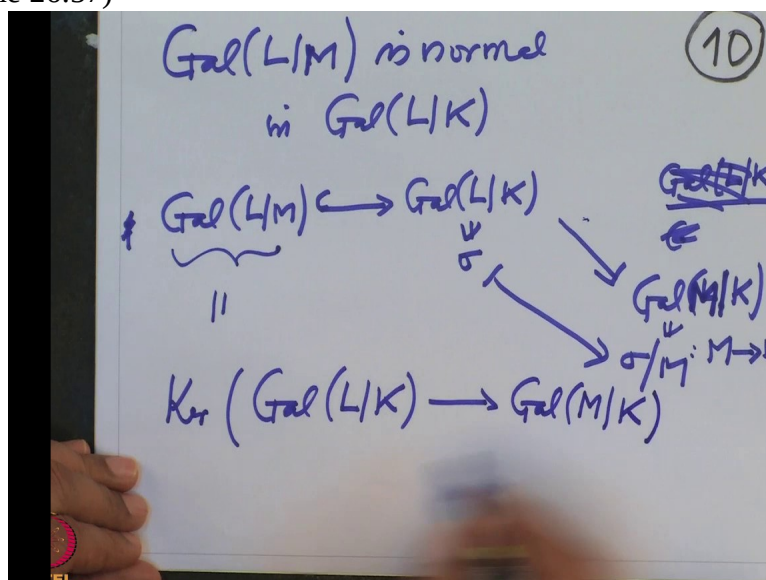 Gal(L/M) is normal
in Gal(L/K)
10
Gal(L/M) ↪ Gal(L/K)
σ
Gal(M/K)
σ/M : M →
||
Ker ( Gal(L/K) ⟶ Gal(M/K)